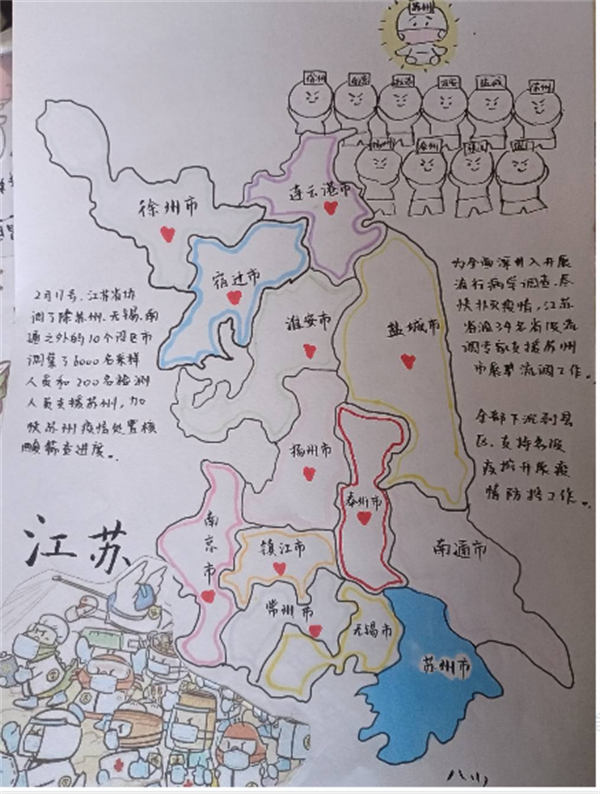 苏州
徐州
盐城
泰州
连云港市
徐州市
宿迁市
淮安市
盐城市
2月17号，江苏省协
调了除苏州、无锡、南
通之外的10个设区市
调集了6000名采样
人员和200名检测
人员支援苏州，加
快苏州疫情处置核
酸筛查进度。
为全面深入开展
流行病学调查，尽
快扑灭疫情，江苏
省派34名省级流
调专家支援苏州
市展开流调工作。
全部下沉到县
区，支持各级
疾控开展疫
情防控工作。
扬州市
泰州市
南京市
镇江市
南通市
常州市
无锡市
苏州市
江苏